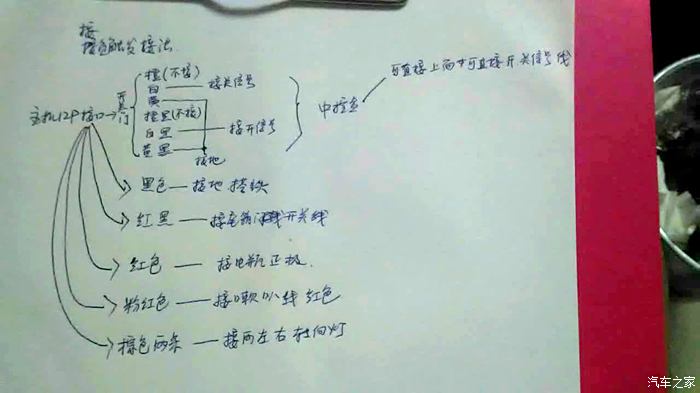 接
负触发接法
橙(不接)
白 — 接关信号
黄
主机12P接口→开关门
橙黑(不接)
白黑 — 接开信号
黄黑
接地
中控盒
可直接上面 可直接开关信号线
黑色 — 接地 搭铁
红黑 — 接 开关线
红色 — 接电瓶正极.
粉红色 — 接喇叭线 红色
棕色两条 — 接两左右转向灯
汽车之家